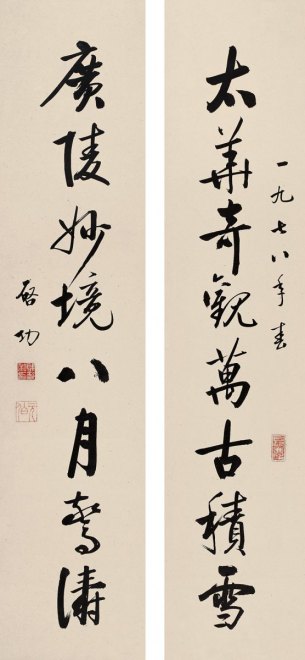 太華奇觀萬古積雪
一九七八年春
廣陵妙境八月驚濤
啓功